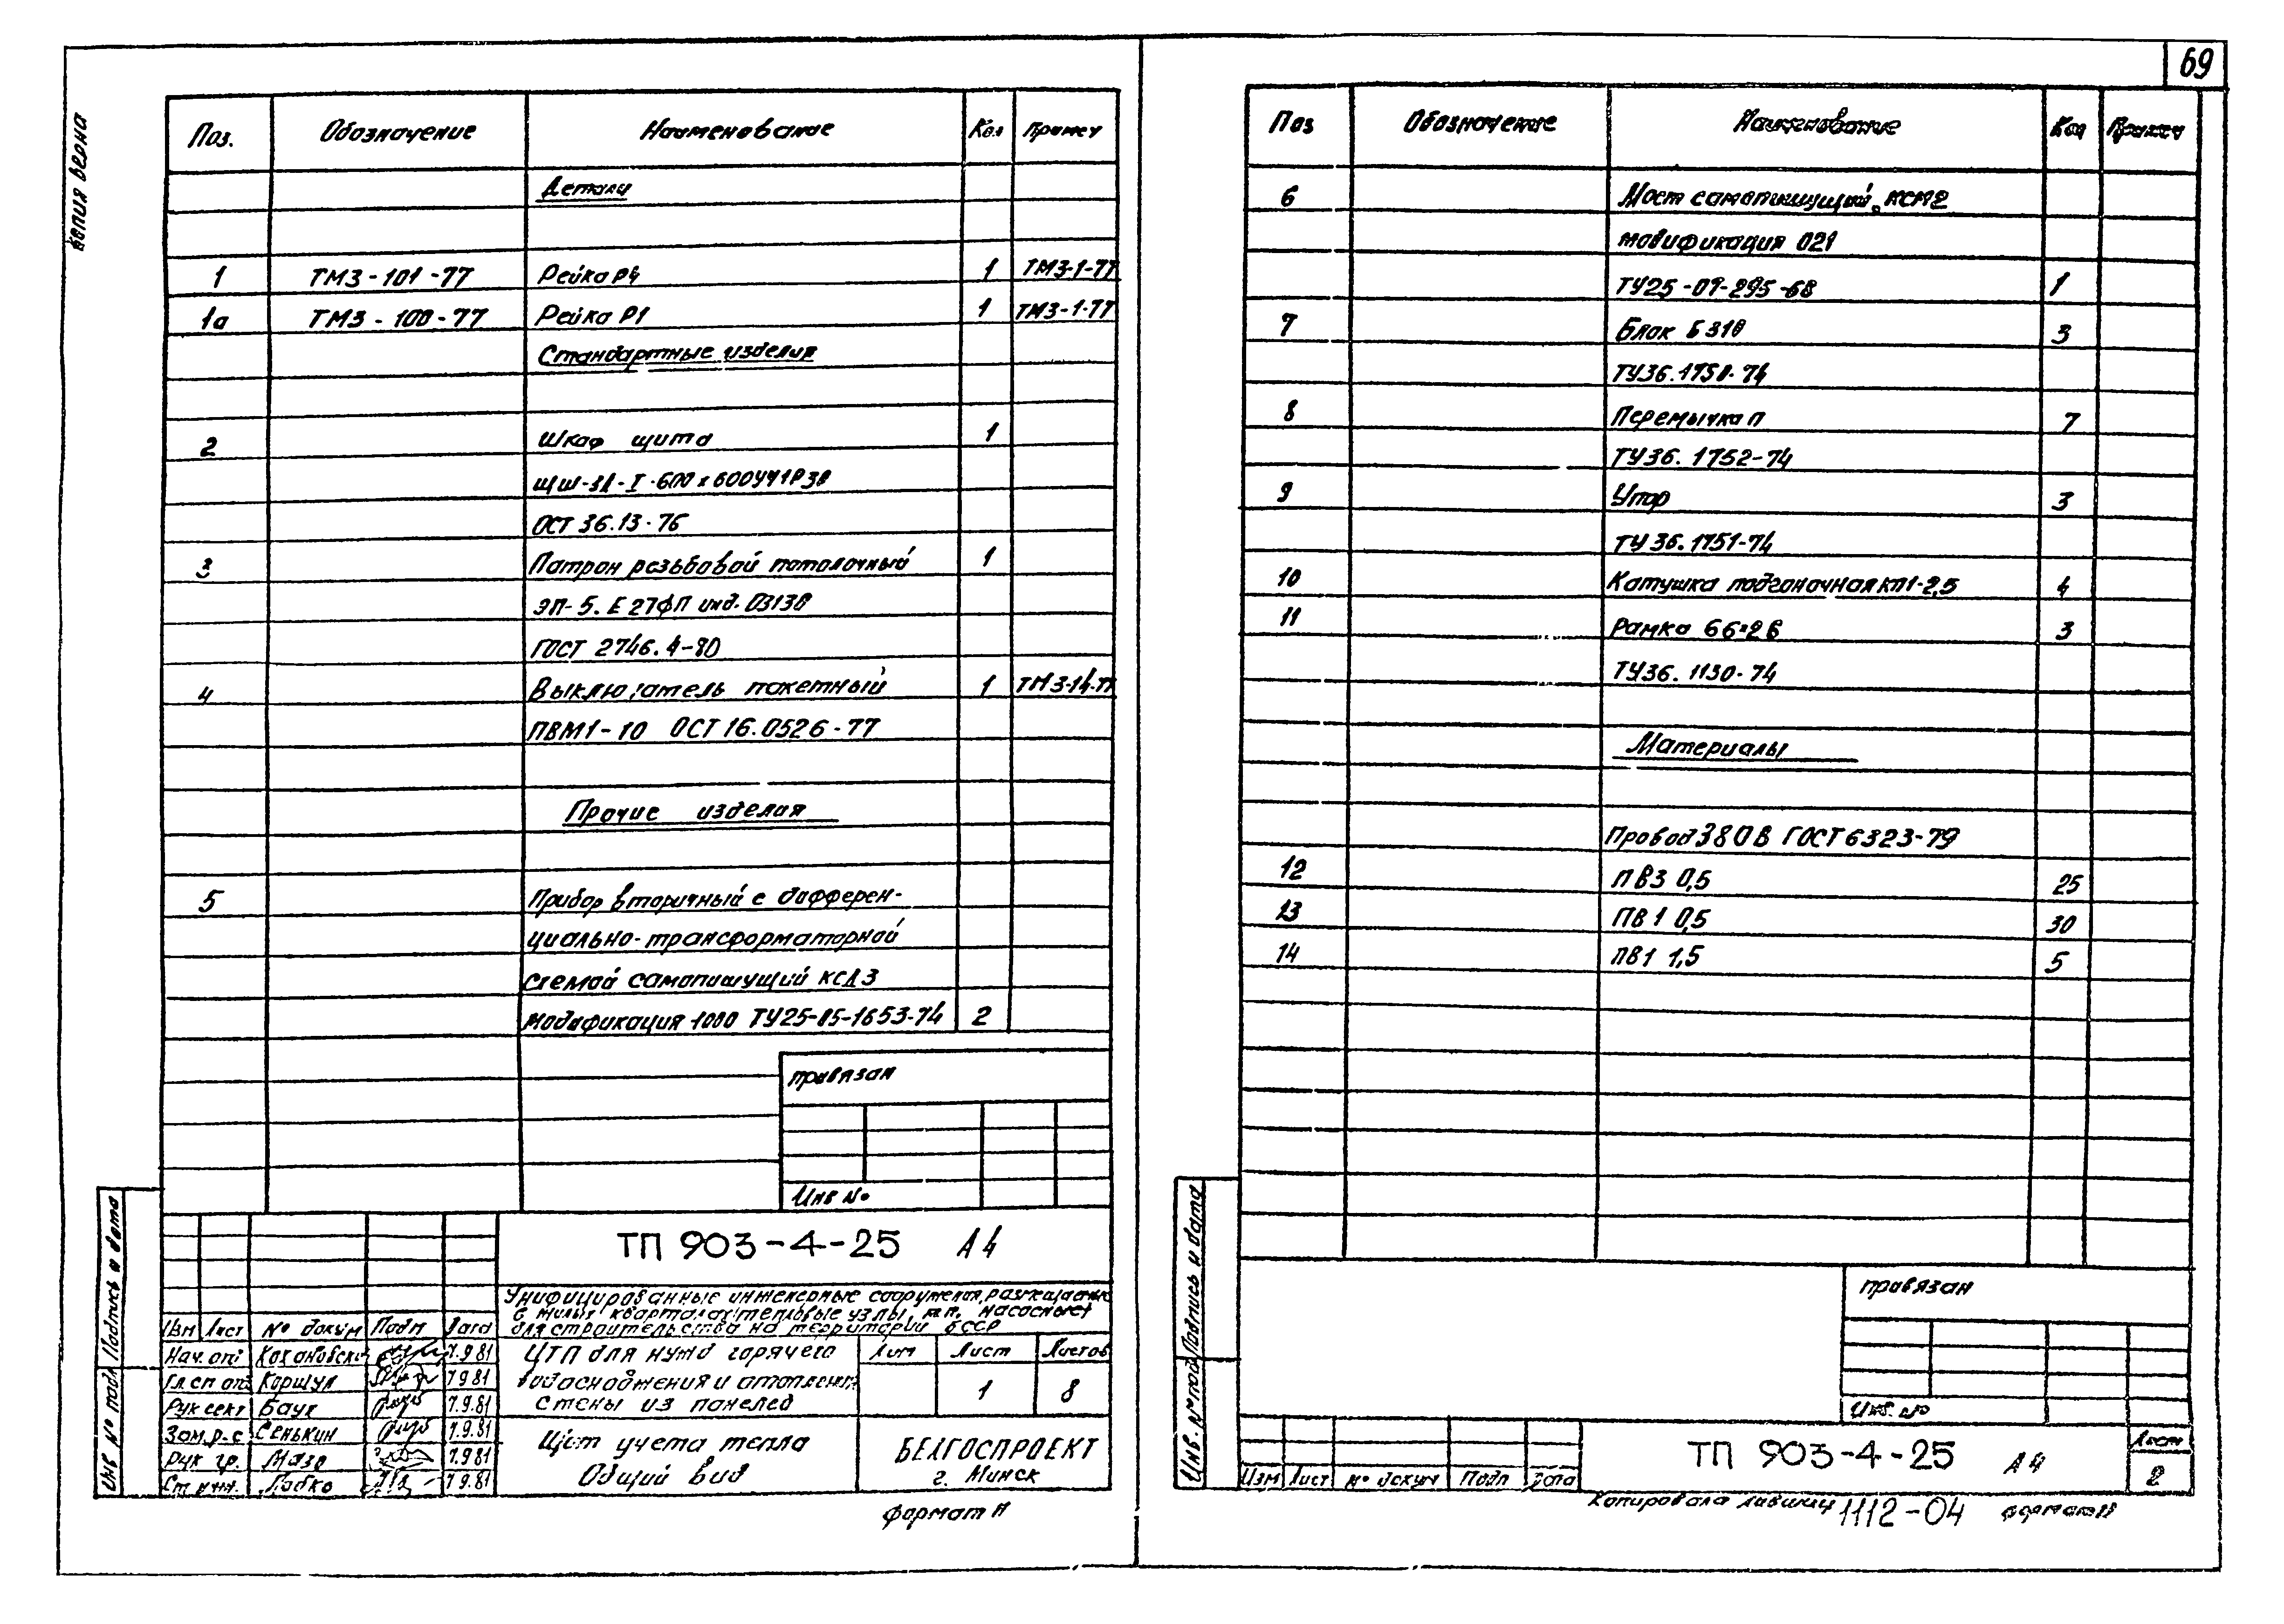 69
Копия верна
Поз. Обозначение Наименование Кол Примеч
Детали
1 ТМ3-101-77 Рейка Р4 1 ТМ3-1-77
1а ТМ3-100-77 Рейка Р1 1 ТМ3-1-77
Стандартные изделия
2 Шкаф щита 1
ОСТ 36.13-76
3 Патрон резьбовой потолочный 1
ЭП-5. Е27ФП инд. 03130
ГОСТ 2746.4-80
4 Выключатель пакетный 1 ТМ3-14-77
ПВМ1-10 ОСТ 16.0526-77
Прочие изделия
5 Прибор вторичный с дифферен-
циально-трансформаторной
схемой самопишущий КСД3
модификация 1000 ТУ25-05-1653-74 2
привязан
Инв №
ТП 903-4-25 А4
Унифицированные инженерные сооружения, размещаемые
в жилых кварталах (тепловые узлы, т.п. насосные)
для строительства на территории БССР
Изм Лист № докум Подп Дата
Нач. отд Кохановский 7.9.81
Гл. сп. отд Коршук 7.9.81
Рук сект Баук 7.9.81
Зам. р.с Сенькин 7.9.81
Рук гр. Мазо 7.9.81
Ст. инж. Лабко 7.9.81
ЦТП для нужд горячего
водоснабжения и отопления
стены из панелей
Лит Лист Листов
1 8
Щит учета тепла
Общий вид
БЕЛГОСПРОЕКТ
г. Минск
Формат
Инв № подл Подпись и дата
Поз Обозначение Наименование Кол Примеч
6 Мост самопишущий КСМ2
модификация 021
ТУ25-09-295-68 1
7 Блок Б310 3
ТУ36.1750-74
8 Перемычка П 7
ТУ36.1752-74
9 Упор 3
ТУ36.1751-74
10 Катушка подгоночная КП1-2,5 4
11 Рамка 66×26 3
ТУ36.1130-74
Материалы
Провод 380В ГОСТ 6323-79
12 ПВ3 0,5 25
13 ПВ1 0,5 30
14 ПВ1 1,5 5
привязан
Инв. №
Изм Лист № докум Подп Дата
ТП 903-4-25 А4
Лист
2
Копировала 1112-04 Формат
Инв. № подл Подпись и дата